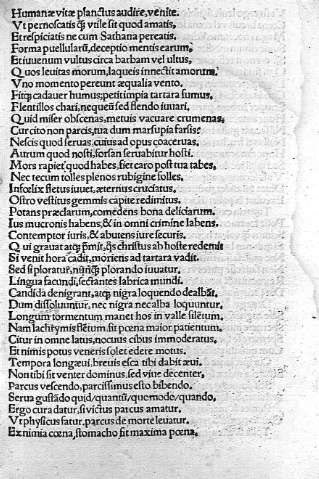 Humanæ vitæ planctus audire, venite.
Vt pernoscatis qͥ vtile sit quod amatis,
Et respiciatis ne cum Sathana pereatis.
Forma puellularũ, deceptio mentis earum,
Et iuuenum vultus circa barbam vel vltus,
Quos leuitas morum, laqueis innectit amorum.
Vno momento pereunt æqualia vento.
Fitq̃ cadauer humus; petit impia tartara fumus.
Flentillos chari, nequeũt sed flendo iuuari.
Quid miser obscenas, metuis vacuare crumenas
Cur cito non parcis, tua dum marsupia farsis:
Nescis quod seruas; cuius ad opus coaceruas.
Aurum quod nosti, forsan seruabitur hosti.
Mors rapiet quod habes, fiet caro post tua tabes.
Nec tecum tolles plenos rubigine folles.
Infœlix fletus iuuet, æternus cruciatus.
Ostro vestitus gemmis capite redimitus.
Potans præclarum, comedens bona deliciarum.
Ius mucronis habens, & in omni crimine labens.
Contemptor iuris, & abutens iure securis.
Qui grauat atq̃ p̃mit, q̃s christus ab hoste redemit
Si venit hora cadit, moriens ad tartara vadit.
Sed si ploratur, nunq̃ plorando iuuatur.
Lingua facundi, sectantes labrica mundi.
Candida denigrant, atq̃ nigra loquendo dealbãt.
Dum dissoluuntur, nec nigra nec alba loquuntur.
Longum tormentum manet hos in valle silētum.
Nam lachrymis fletum, sit pœna maior patientum.
Citur in omne latus, nocuus cibus immoderatus.
Et nimis potus veneris solet edere motus.
Tempora longæui, breuis esca tibi dabit æui.
Non tibi sit venter dominus, sed vite decenter.
Parcus vescendo, parcissimus esto bibendo.
Serua gustãdo quid/quantũ/quemode/quando,
Ergo cura datur, si victus parcus amatur.
Vt physicus fatur, parcus de morte leuatur.
Ex nimia cœna, stomacho fit maxima pœna.